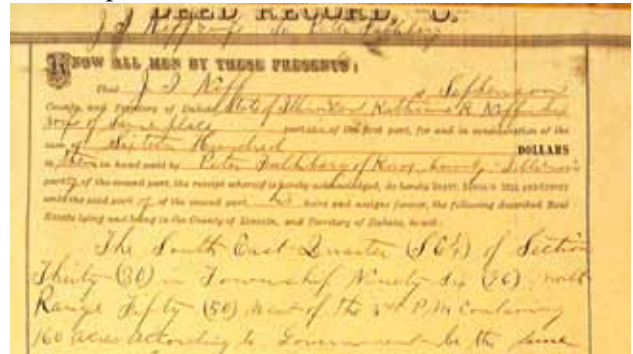 DEED RECORD, C.
KNOW ALL MEN BY THESE PRESENTS:
That J I Niff Stephenson
County, and Territory of Dakota State of Illinois & Katherine R. his
wife of same place part of the first part, for and in consideration of the
sum of Sixteen Hundred DOLLARS
to in hand paid by Peter of Knox County Illinois
part of the second part, the receipt whereof is hereby acknowledged, do hereby GRANT, BARGAIN SELL AND CONVEY
unto the said part y of the second part, his heirs and assigns forever, the following described Real
Estate lying and being in the County of Lincoln, and Territory of Dakota, to-wit:
The South East Quarter (SE¼) of Section
Thirty (30) in Township Ninety Six (96) north
Range Fifty (50) West of the 5th P.M Containing
160 acres according to Government be the same